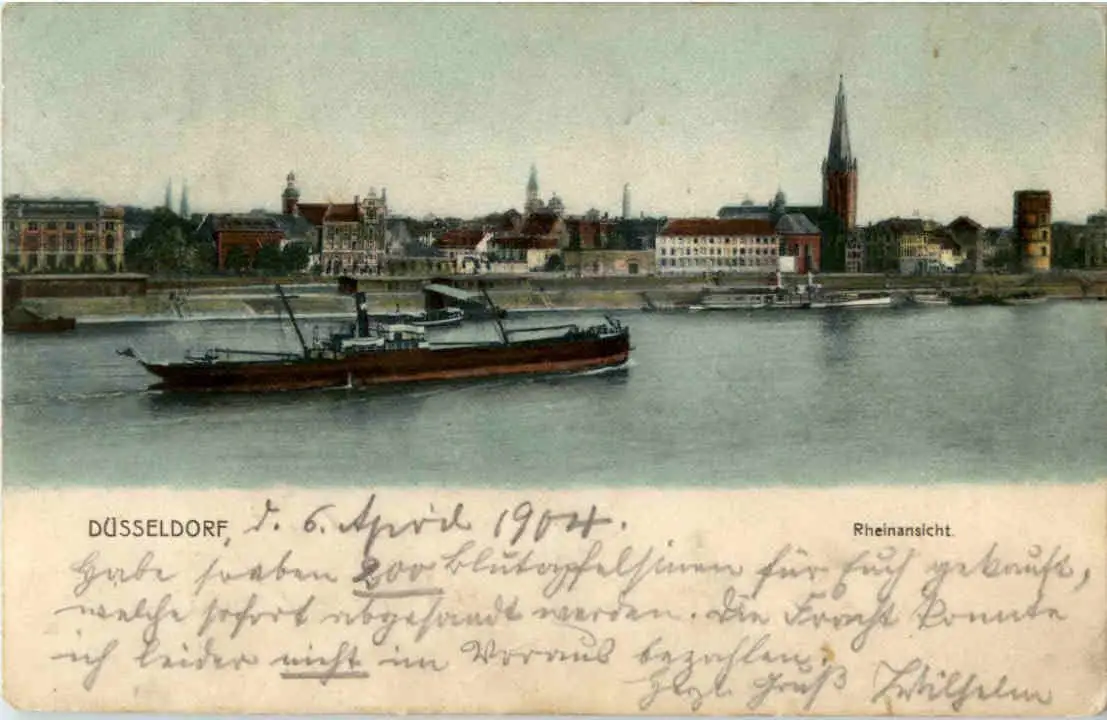 DÜSSELDORF, d. 6. April 1904.
Rheinansicht.
Habe soeben 200 Blutapfelsinen für Euch gekauft,
welche sofort abgesandt werden. Die Fracht konnte
ich leider nicht im Voraus bezahlen.
Herzl. Gruß Wilhelm